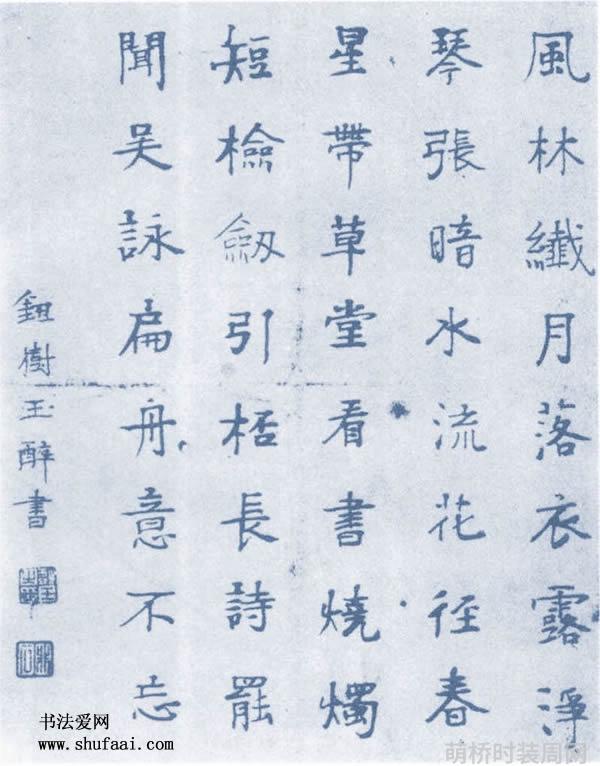 風林纖月落衣露淨
琴張暗水流花径春
星帶草堂看書燒燭
短檢劔引桮長詩罷
聞吴詠扁舟意不忘
鈕樹玉醉書
书法爱网
www.shufaai.com
萌桥时装周网